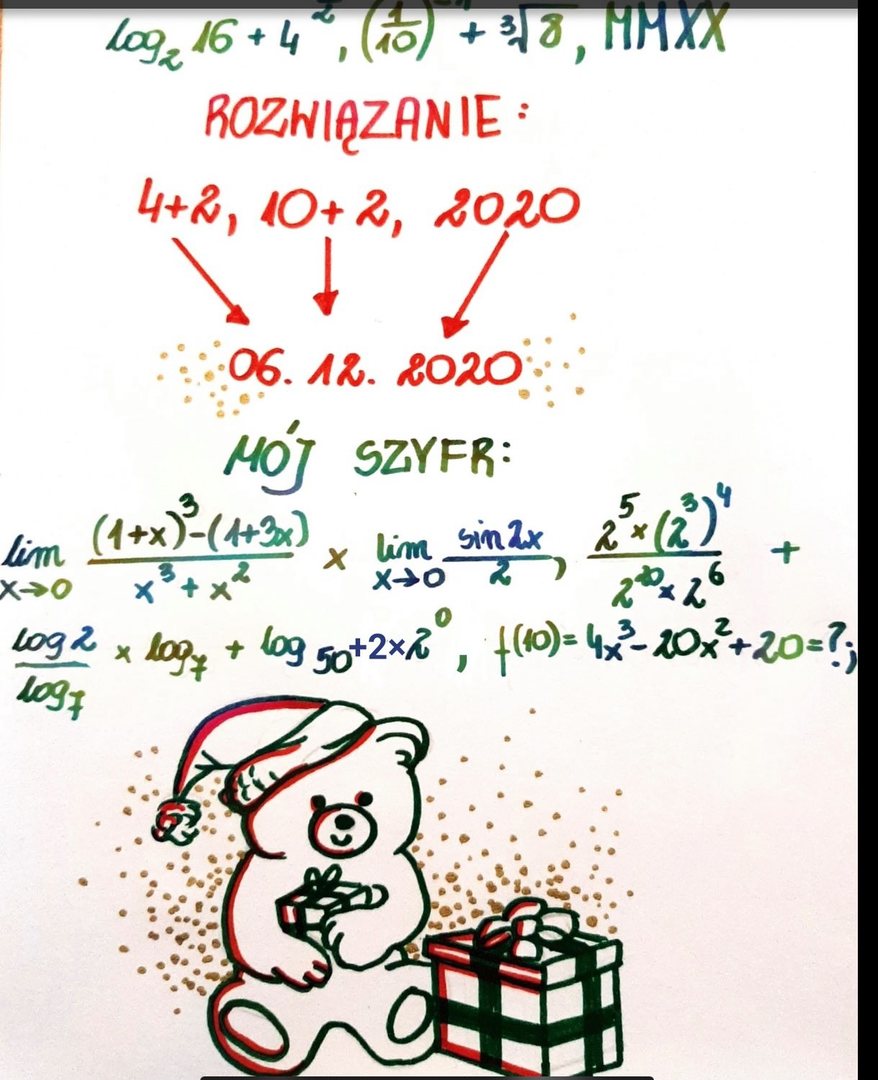 log₂ 16 + 4 ², (1/10)⁻ + ³√8, MMXX
ROZWIĄZANIE:
4+2, 10+2, 2020
06. 12. 2020
MÓJ SZYFR:
lim x→0 ((1+x)³-(1+3x))/(x³+x²) x lim x→0 (sin2x)/2, (2⁵×(2³)⁴)/(2²⁰×2⁶) +
log2/log7 × log7 + log 50+2×2⁰, f(10)=4x³-20x²+20=?;